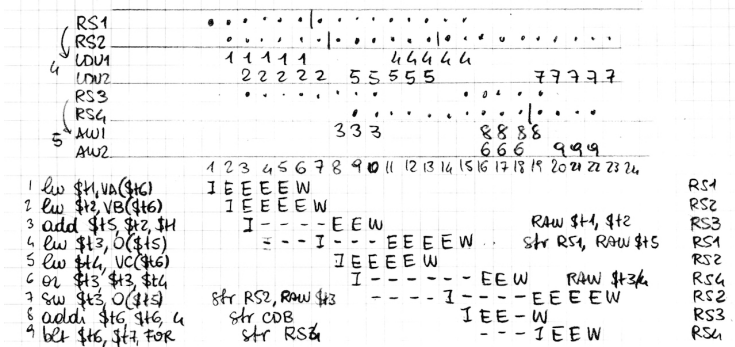 RS1
RS2
LDU1 1 1 1 1 1 4 4 4 4 4
4 LDU2 2 2 2 2 2 5 5 5 5 5 7 7 7 7 7
RS3
RS4
5 ALU1 3 3 3 8 8 8 8
ALU2 6 6 6 9 9 9
1 2 3 4 5 6 7 8 9 10 11 12 13 14 15 16 17 18 19 20 21 22 23 24
1 lw $t1, VA($t6) I E E E E W RS1
2 lw $t2, VB($t6) I E E E E W RS2
3 add $t5, $t2, $t1 I - - - - E E W RAW $t1, $t2 RS3
4 lw $t3, 0($t5) - - - I - - - E E E E W str RS1, RAW $t5 RS1
5 lw $t4, VC($t6) I E E E E W RS2
6 or $t3, $t3, $t4 I - - - - - - E E W RAW $t3/4 RS4
7 sw $t3, 0($t5) str RS2, RAW $t3 - - - - I - - - - E E E E W RS2
8 addi $t6, $t6, 4 str CDB I E E - W RS3
9 blt $t6, $t7, FOR str RS4 - - - I E E W RS4